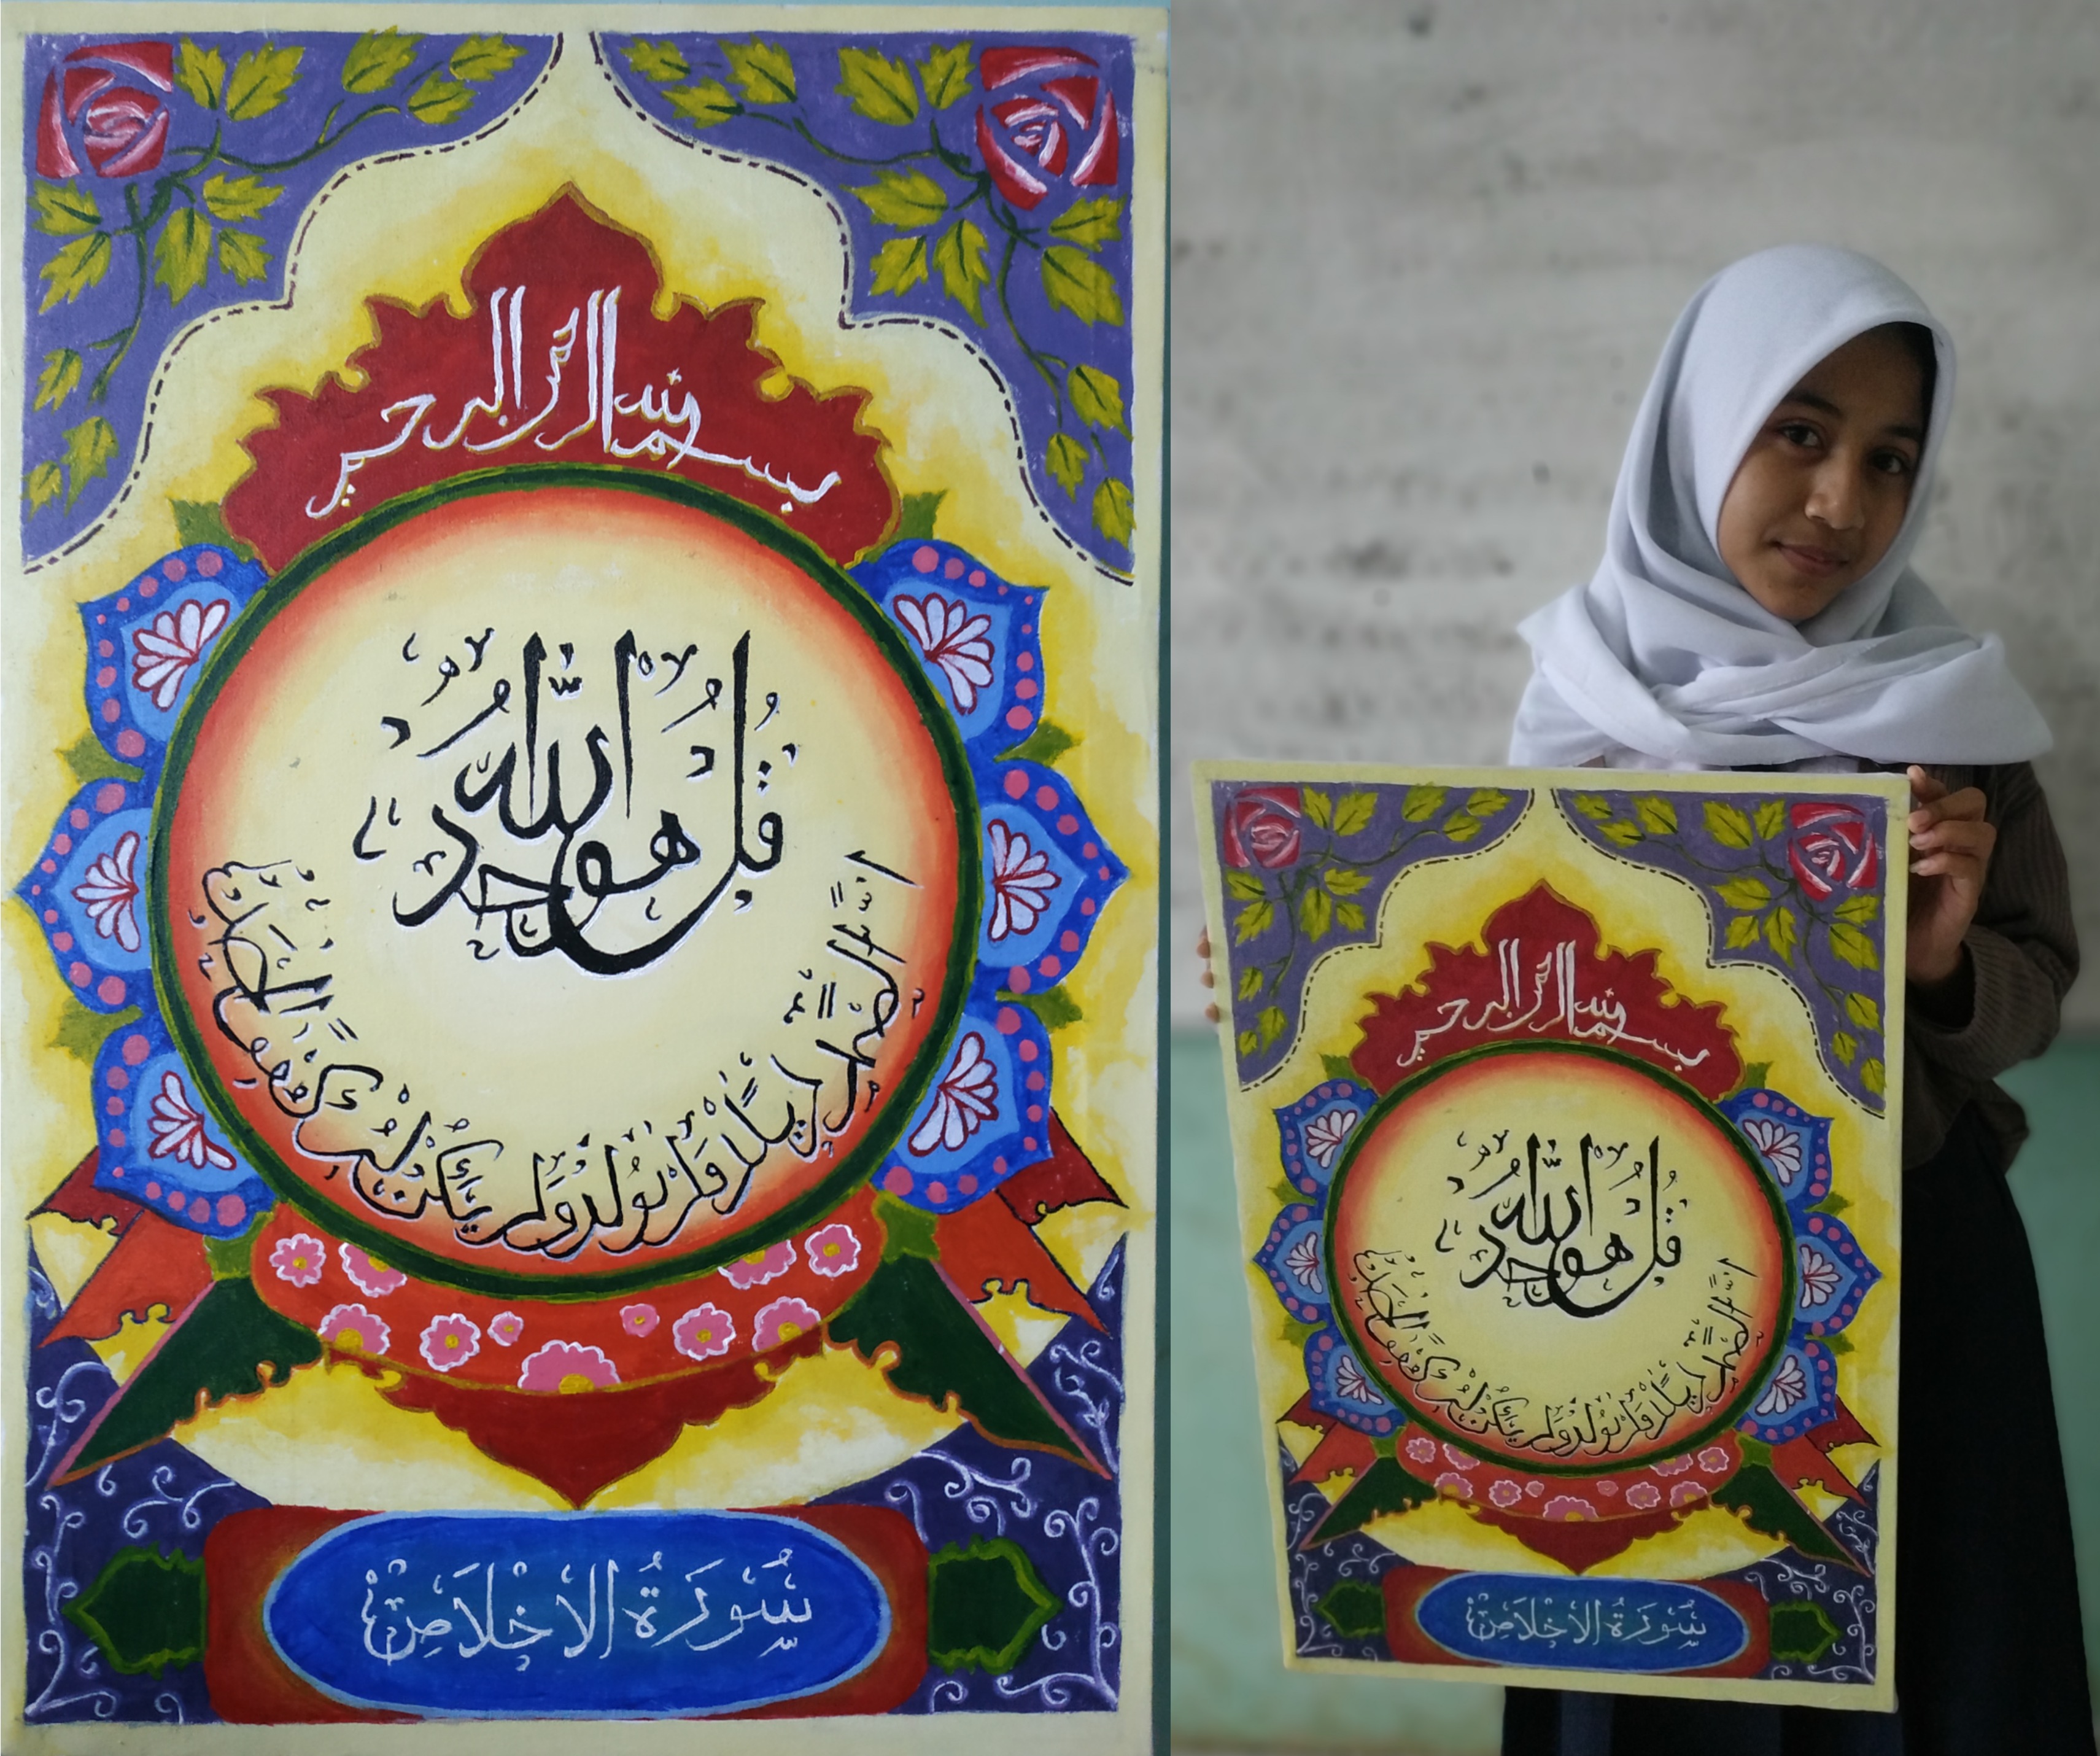 بسم الله الرحمن الرحيم
قُلْ هُوَ اللّٰهُ أَحَدٌ
اللّٰهُ الصَّمَدُ لَمْ يَلِدْ وَلَمْ يُولَدْ وَلَمْ يَكُنْ لَهُ كُفُوًا أَحَدٌ
سُورَةُ الْاِخْلَاصِ
بسم الله الرحمن الرحيم
قُلْ هُوَ اللّٰهُ أَحَدٌ
اللّٰهُ الصَّمَدُ لَمْ يَلِدْ وَلَمْ يُولَدْ وَلَمْ يَكُنْ لَهُ كُفُوًا أَحَدٌ
سُورَةُ الْاِخْلَاصِ